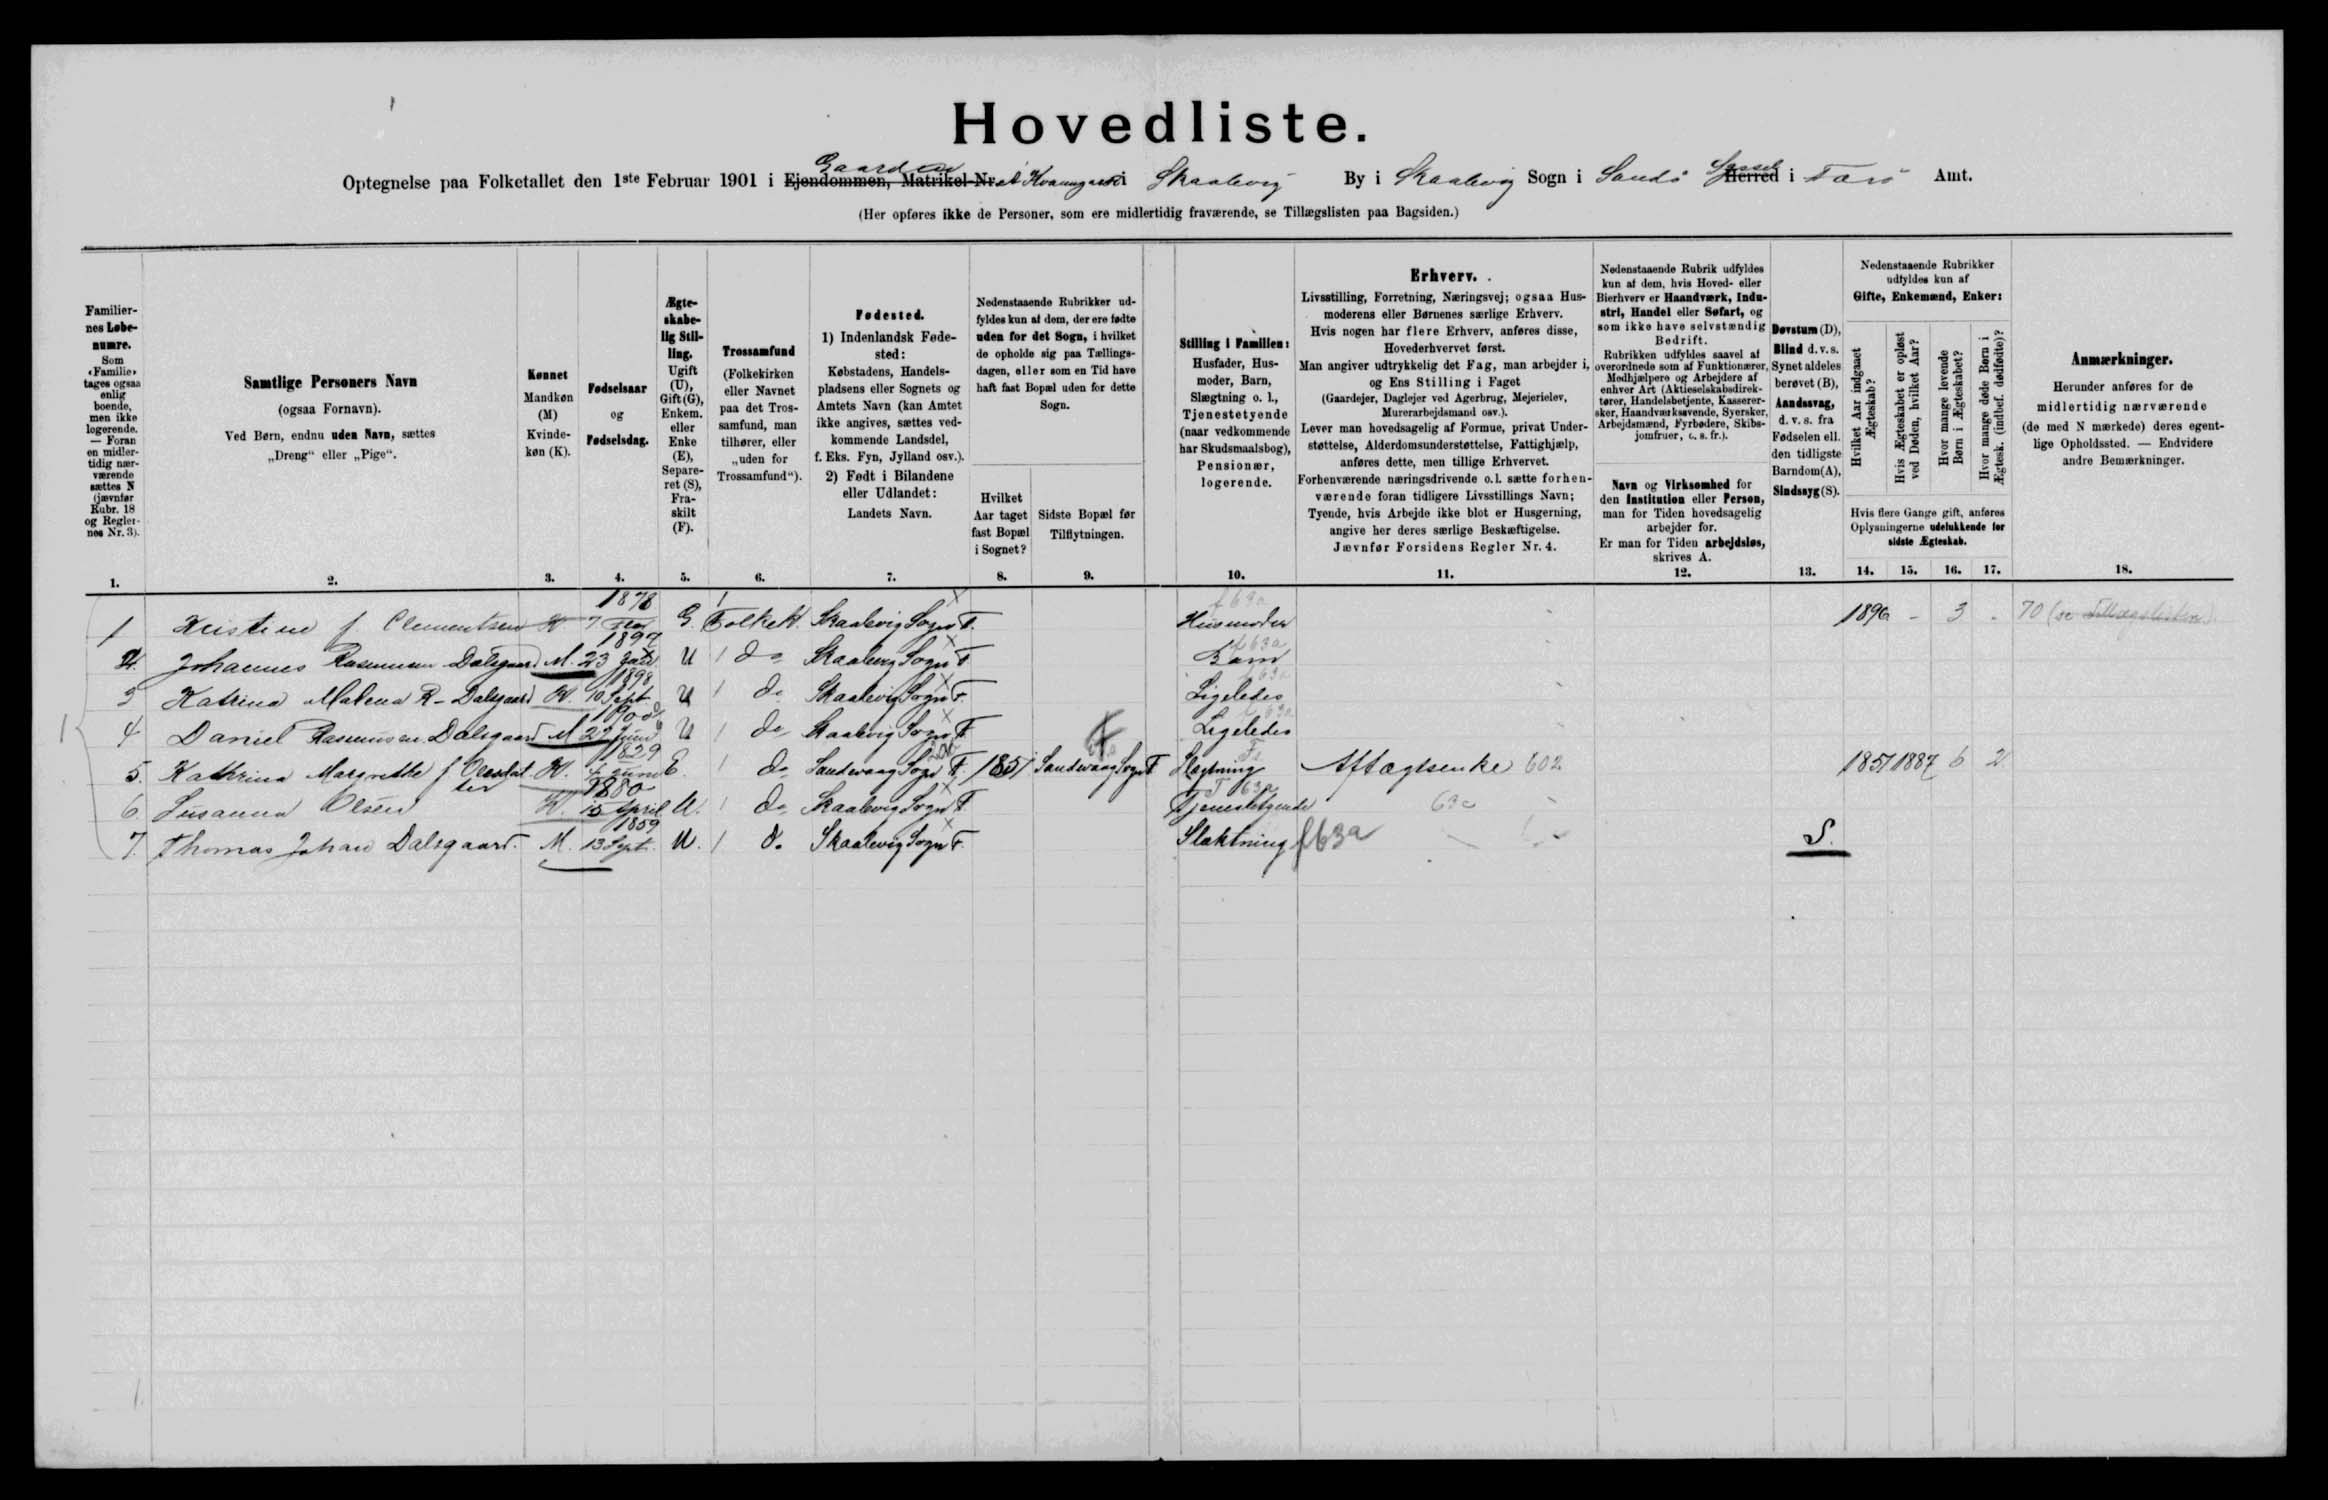 Hovedliste.
Gaarden
Optegnelse paa Folketallet den 1ste Februar 1901 i Ejendommen, Matrikel-Nr. i Skaalevig By i Skaalevig Sogn i Sandø Syssel Herred i Færø Amt.
(Her opføres ikke de Personer, som ere midlertidig fraværende, se Tillægslisten paa Bagsiden.)
Familier-
nes Løbe-
numre.
Som
«Familie»
tages ogsaa
enlig
boende,
men ikke
logerende.
— Foran
en midler-
tidig nær-
værende
sættes N
(jævnfør
Rubr. 18
og Regler-
nes Nr. 3).
1.
Samtlige Personers Navn
(ogsaa Fornavn).
Ved Børn, endnu uden Navn, sættes
„Dreng“ eller „Pige“.
2.
Kønnet
Mandkøn
(M)
Kvinde-
køn (K).
3.
Fødselsaar
og
Fødselsdag.
4.
Ægte-
skabe-
lig Stil-
ling.
Ugift
(U),
Gift (G),
Enkem.
eller
Enke
(E),
Separe-
ret (S),
Fra-
skilt
(F).
5.
Trossamfund
(Folkekirken
eller Navnet
paa det Tros-
samfund, man
tilhører, eller
„uden for
Trossamfund“).
6.
Fødested.
1) Indenlandsk Føde-
sted:
Købstadens, Handels-
pladsens eller Sognets og
Amtets Navn (kan Amtet
ikke angives, sættes ved-
kommende Landsdel,
f. Eks. Fyn, Jylland osv.).
2) Født i Bilandene
eller Udlandet:
Landets Navn.
7.
Nedenstaaende Rubrikker ud-
fyldes kun af dem, der ere fødte
uden for det Sogn, i hvilket
de opholde sig paa Tællings-
dagen, eller som en Tid have
haft fast Bopæl uden for dette
Sogn.
Hvilket
Aar taget
fast Bopæl
i Sognet?
8.
Sidste Bopæl før
Tilflytningen.
9.
Stilling i Familien:
Husfader, Hus-
moder, Barn,
Slægtning o. l.,
Tjenestetyende
(naar vedkommende
har Skudsmaalsbog),
Pensionær,
logerende.
10.
Erhverv.
Livsstilling, Forretning, Næringsvej; ogsaa Hus-
moderens eller Børnenes særlige Erhverv.
Hvis nogen har flere Erhverv, anføres disse,
Hovederhvervet først.
Man angiver udtrykkelig det Fag, man arbejder i,
og Ens Stilling i Faget
(Gaardejer, Daglejer ved Agerbrug, Mejerielev,
Murerarbejdsmand osv.).
Lever man hovedsagelig af Formue, privat Under-
støttelse, Alderdomsunderstøttelse, Fattighjælp,
anføres dette, men tillige Erhvervet.
Forhenværende næringsdrivende o.l. sætte forhen-
værende foran tidligere Livsstillings Navn;
Tyende, hvis Arbejde ikke blot er Husgerning,
angive her deres særlige Beskæftigelse.
Jævnfør Forsidens Regler Nr. 4.
11.
Nedenstaaende Rubrik udfyldes
kun af dem, hvis Hoved- eller
Bierhverv er Haandværk, Indu-
stri, Handel eller Søfart, og
som ikke have selvstændig
Bedrift.
Rubrikken udfyldes saavel af
overordnede som af Funktionærer,
Medhjælpere og Arbejdere af
enhver Art (Aktieselskabsdirek-
tører, Handelsbetjente, Kasserer-
sker, Haandværksvende, Syersker,
Arbejdsmænd, Fyrbødere, Skibs-
jomfruer, o. s. fr.).
Navn og Virksomhed for
den Institution eller Person,
man for Tiden hovedsagelig
arbejder for.
Er man for Tiden arbejdsløs,
skrives A.
12.
Døvstum (D),
Blind d. v. s.
Synet aldeles
berøvet (B),
Aandssvag,
d. v. s. fra
Fødselen ell.
den tidligste
Barndom (A),
Sindssyg (S).
13.
Nedenstaaende Rubrikker
udfyldes kun af
Gifte, Enkemænd, Enker:
Hvilket Aar indgaaet
Ægteskab?
Hvis Ægteskabet er opløst
ved Døden, hvilket Aar?
Hvor mange levende
Børn i Ægteskabet?
Hvor mange døde Børn i
Ægtesk. (indbef. dødfødte)?
Hvis flere Gange gift, anføres
Oplysningerne udelukkende for
sidste Ægteskab.
14. 15. 16. 17.
Anmærkninger.
Herunder anføres for de
midlertidig nærværende
(de med N mærkede) deres egent-
lige Opholdssted. — Endvidere
andre Bemærkninger.
18.
1 Kristine f Clementsen K. 7 1878 G. Folkek. Skaalevig Sogn F. Husmoder 1896 - 3 - 70 (se Tillægslisten)
Johannes Rasmussen Dalsgaard M. 23 1897 U do Skaalevig Sogn F Barn
3 Katrina Malena R- Dalsgaard K. 10 Sept. 1898 U do Skaalevig Sogn F. Ligeledes
4 Daniel Rasmussen Dalsgaard M 1900 U do Skaalevig Sogn F. Ligeledes
5. Kathrina Margrethe f K. 4 Juni 1829 E. do Sandevaag Sogn F. 1851 Sandevaag Sogn F Slægtning Aftægtsenke 602 1851 1887 6 2
6. Susanna Olsen K. 15 April 1880 U. do Skaalevig Sogn F Tjenestetyende 63a
7. Thomas Johan Dalsgaard. M. 13 Sept. 1859 U. do Skaalevig Sogn F. Slaktning f63a S.